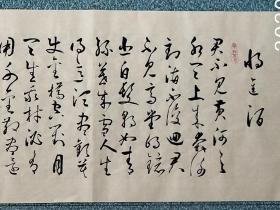 将進酒
君不見黄河之
水天上来奔流
到海不復迴君
不見高堂明鏡
悲白髮朝如青
絲暮成雪人生
得意须盡歡莫
使金樽空對月
天生我材必有
用千金散盡還